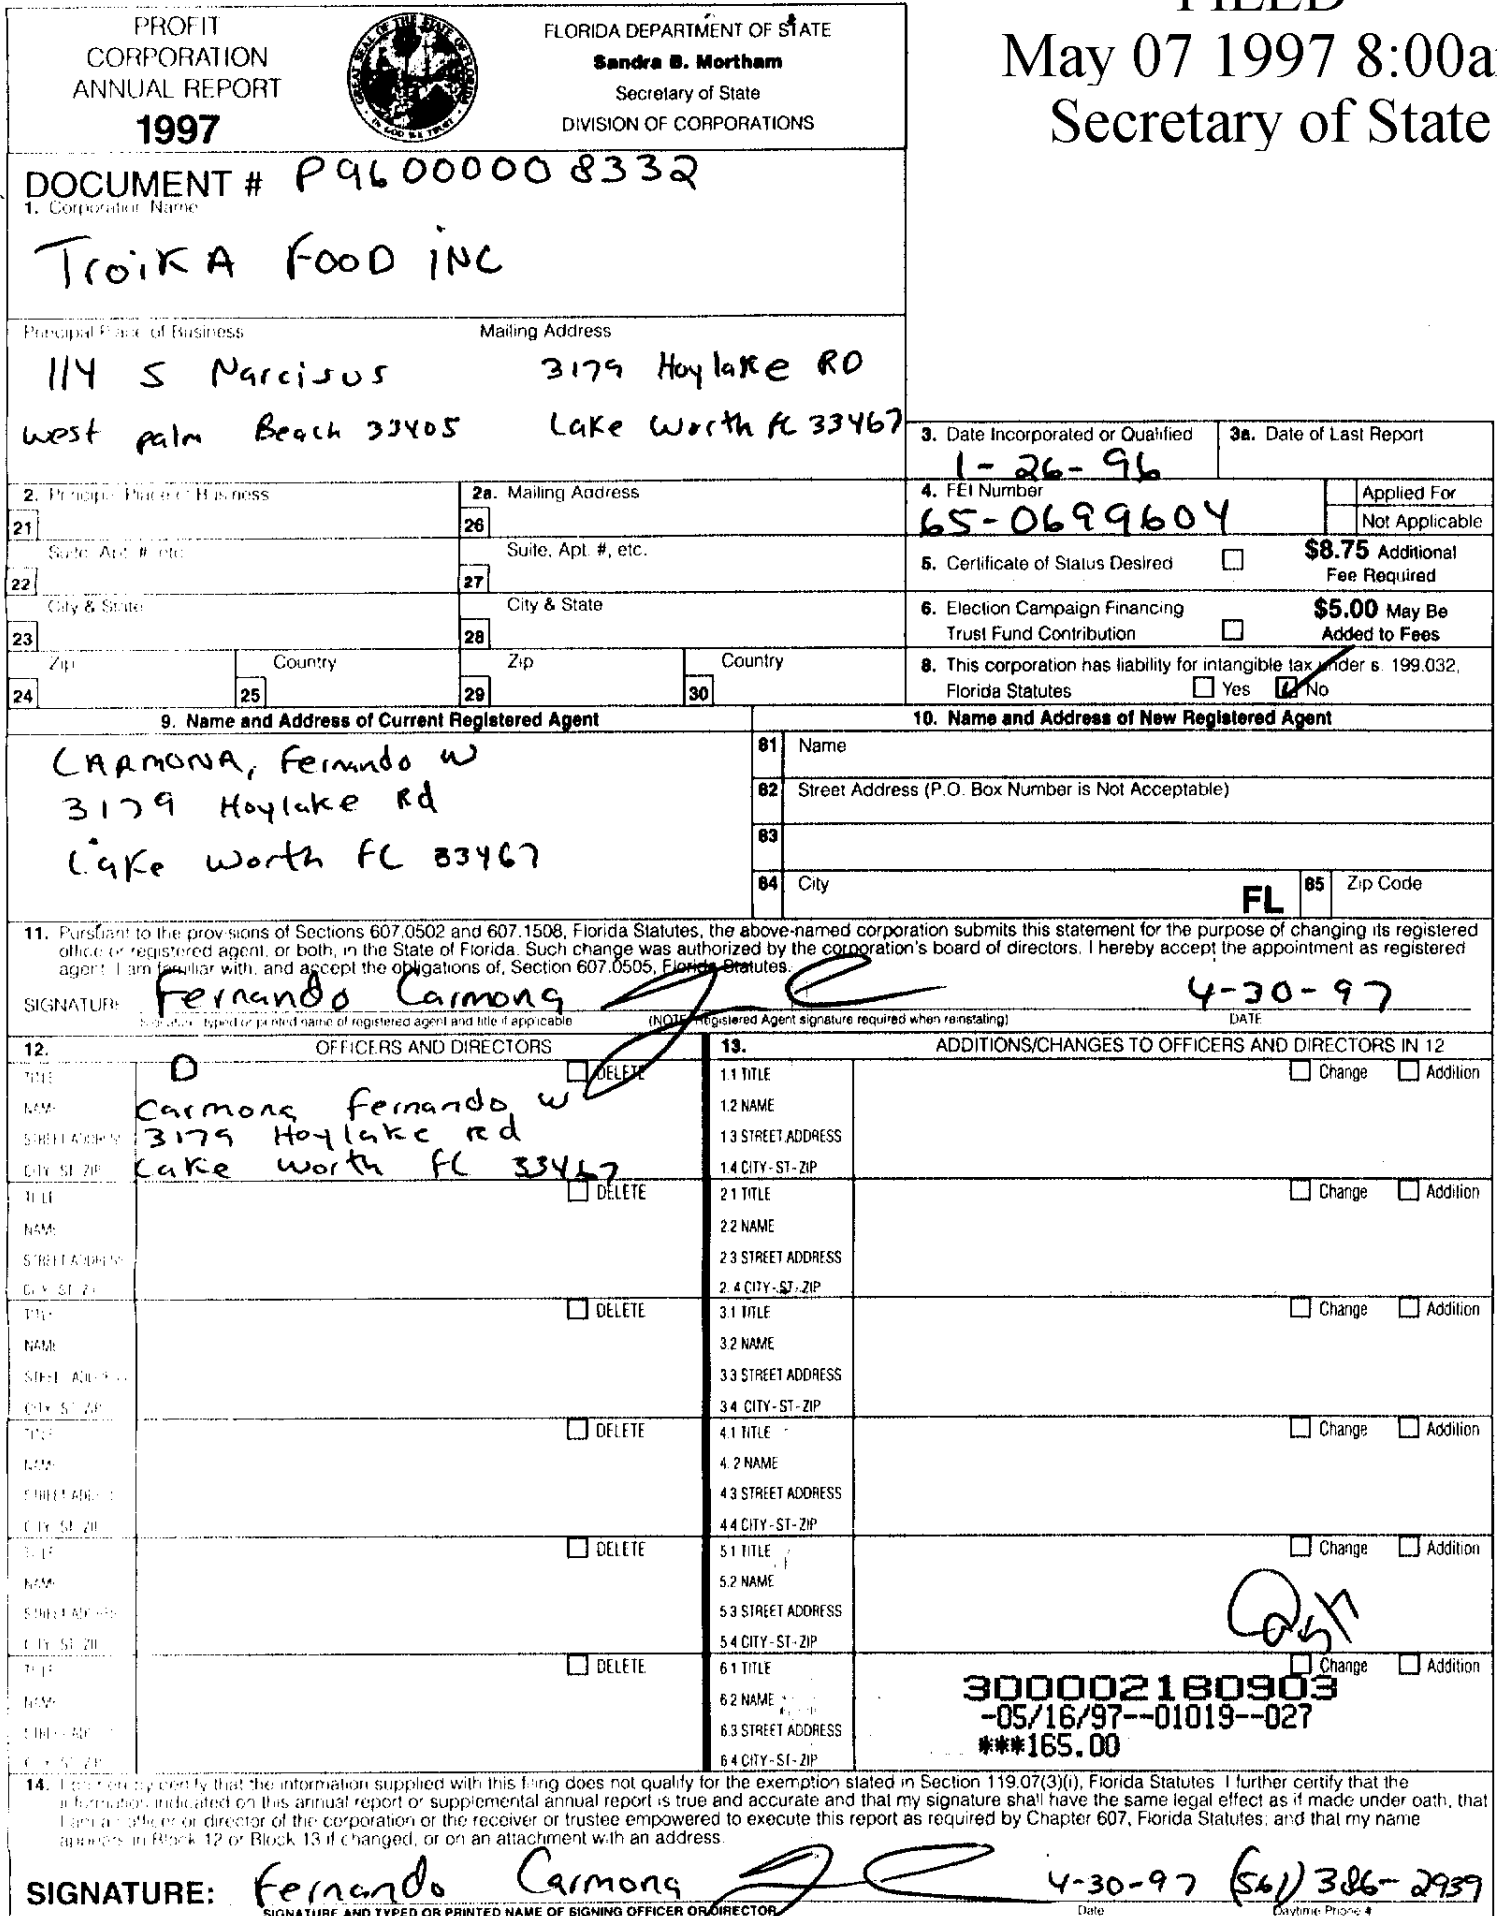 PROFIT
CORPORATION
ANNUAL REPORT
1997
FLORIDA DEPARTMENT OF STATE
Sandra B. Mortham
Secretary of State
DIVISION OF CORPORATIONS
FILED
May 07 1997 8:00a
Secretary of State
DOCUMENT # P96000008332
1. Corporation Name
TroikA FOOD iNC
Principal Place of Business
114 S Narcisus
west palm Beach 33405
Mailing Address
3179 Hoylake RD
Lake Worth FL 33467
3. Date Incorporated or Qualified
1-26-96
3a. Date of Last Report
2. Principal Place of Business
21
2a. Mailing Address
26
4. FEI Number
65-0699604
Applied For
Not Applicable
Suite, Apt. #, etc.
22
Suite, Apt. #, etc.
27
5. Certificate of Status Desired
$8.75 Additional
Fee Required
City & State
23
City & State
28
6. Election Campaign Financing
Trust Fund Contribution
$5.00 May Be
Added to Fees
Zip
24
Country
25
Zip
29
Country
30
8. This corporation has liability for intangible tax under s. 199.032,
Florida Statutes Yes No
9. Name and Address of Current Registered Agent
CARMONA, Fernando W
3179 Hoylake Rd
Lake Worth FL 33467
10. Name and Address of New Registered Agent
81 Name
82 Street Address (P.O. Box Number is Not Acceptable)
83
84 City FL 85 Zip Code
11. Pursuant to the provisions of Sections 607.0502 and 607.1508, Florida Statutes, the above-named corporation submits this statement for the purpose of changing its registered
office or registered agent, or both, in the State of Florida. Such change was authorized by the corporation's board of directors. I hereby accept the appointment as registered
agent. I am familiar with, and accept the obligations of, Section 607.0505, Florida Statutes.
SIGNATURE Fernando Carmona 4-30-97
Signature, typed or printed name of registered agent and title if applicable (NOTE: Registered Agent signature required when reinstating) DATE
12. OFFICERS AND DIRECTORS
13. ADDITIONS/CHANGES TO OFFICERS AND DIRECTORS IN 12
TITLE D DELETE
NAME Carmona Fernando W
STREET ADDRESS 3179 Hoylake rd
CITY-ST-ZIP Lake Worth FL 33467
1.1 TITLE Change Addition
1.2 NAME
1.3 STREET ADDRESS
1.4 CITY-ST-ZIP
TITLE DELETE
NAME
STREET ADDRESS
CITY-ST-ZIP
2.1 TITLE Change Addition
2.2 NAME
2.3 STREET ADDRESS
2.4 CITY-ST-ZIP
TITLE DELETE
NAME
STREET ADDRESS
CITY-ST-ZIP
3.1 TITLE Change Addition
3.2 NAME
3.3 STREET ADDRESS
3.4 CITY-ST-ZIP
TITLE DELETE
NAME
STREET ADDRESS
CITY-ST-ZIP
4.1 TITLE Change Addition
4.2 NAME
4.3 STREET ADDRESS
4.4 CITY-ST-ZIP
TITLE DELETE
NAME
STREET ADDRESS
CITY-ST-ZIP
5.1 TITLE Change Addition
5.2 NAME
5.3 STREET ADDRESS
5.4 CITY-ST-ZIP
Cash
TITLE DELETE
NAME
STREET ADDRESS
CITY-ST-ZIP
6.1 TITLE Change Addition
6.2 NAME
6.3 STREET ADDRESS
6.4 CITY-ST-ZIP
300002180903
-05/16/97--01019--027
***165.00
14. I do hereby certify that the information supplied with this filing does not qualify for the exemption stated in Section 119.07(3)(i), Florida Statutes. I further certify that the
information indicated on this annual report or supplemental annual report is true and accurate and that my signature shall have the same legal effect as if made under oath, that
I am an officer or director of the corporation or the receiver or trustee empowered to execute this report as required by Chapter 607, Florida Statutes; and that my name
appears in Block 12 or Block 13 if changed, or on an attachment with an address.
SIGNATURE: Fernando Carmona 4-30-97 (561) 386-2939
SIGNATURE AND TYPED OR PRINTED NAME OF SIGNING OFFICER OR DIRECTOR Date Daytime Phone #